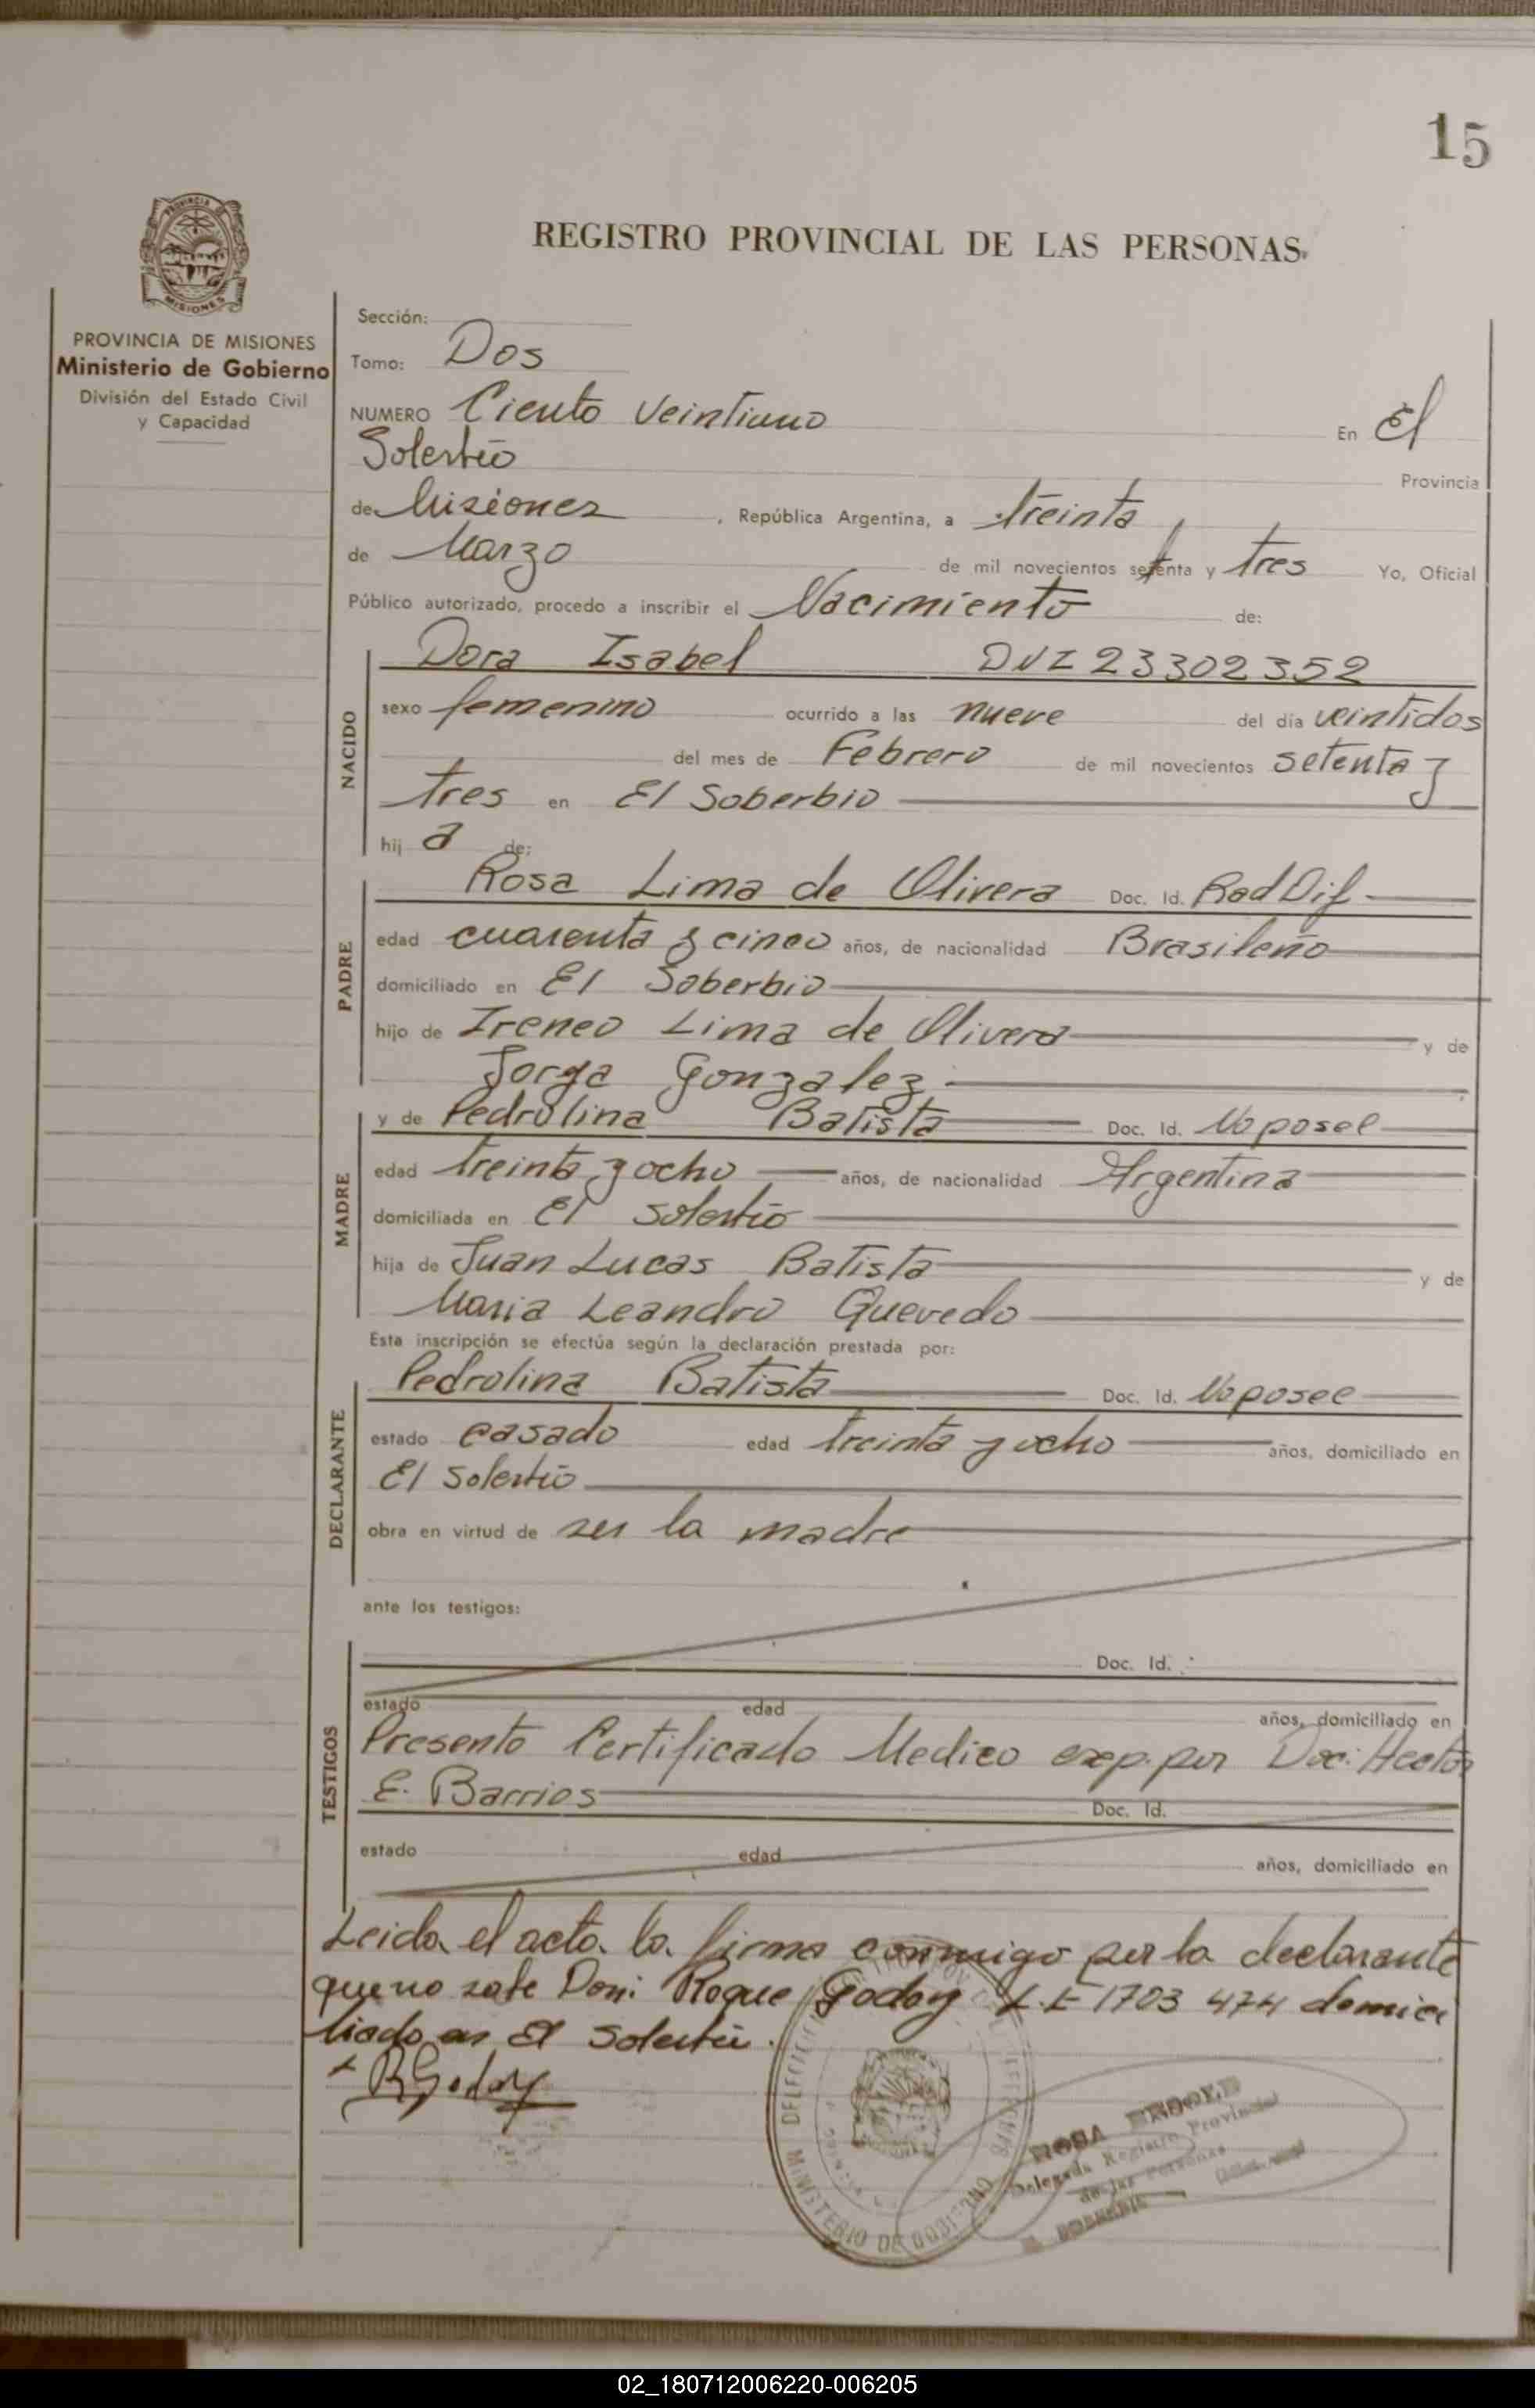 15
REGISTRO PROVINCIAL DE LAS PERSONAS.
PROVINCIA DE MISIONES
Ministerio de Gobierno
División del Estado Civil
y Capacidad
Sección:
Tomo: Dos
NUMERO Ciento Veintiuno En El
Soberbio Provincia
de Misiones, República Argentina, a treinta
de Marzo de mil novecientos setenta y tres Yo, Oficial
Público autorizado, procedo a inscribir el Nacimiento de:
NACIDO
Dora Isabel DNI 23302352
sexo femenino ocurrido a las nueve del día veintidos
del mes de Febrero de mil novecientos setenta y
tres en El Soberbio
hij a de:
PADRE
Rosa Lima de Olivera Doc. Id. Rad Dif
edad cuarenta y cinco años, de nacionalidad Brasileño
domiciliado en El Soberbio
hijo de Ireneo Lima de Olivera y de
Jorga Gonzalez
MADRE
y de Pedrolina Batista Doc. Id. No posee
edad treinta y ocho años, de nacionalidad Argentina
domiciliada en El Soberbio
hija de Juan Lucas Batista y de
Maria Leandro Quevedo
Esta inscripción se efectúa según la declaración prestada por:
DECLARANTE
Pedrolina Batista Doc. Id. No posee
estado casado edad treinta y ocho años, domiciliado en
El Soberbio
obra en virtud de ser la madre
ante los testigos:
TESTIGOS
Doc. Id.
estado edad años, domiciliado en
Presento Certificado Medico exp. por Doc: Hector
E. Barrios Doc. Id.
estado edad años, domiciliado en
Leida el acta la firma conmigo por la declarante
que no sabe Don: Roque Godoy L.E 1703 474 domici
liado en El Soberbio.
RGodoy
MINISTERIO DE GOBIERNO
ROSA
Delegada Registro Provincial
de las Personas
02_180712006220-006205